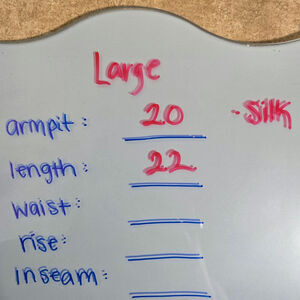 Large
armpit: 20 -Silk
length: 22
waist:
rise:
inseam: